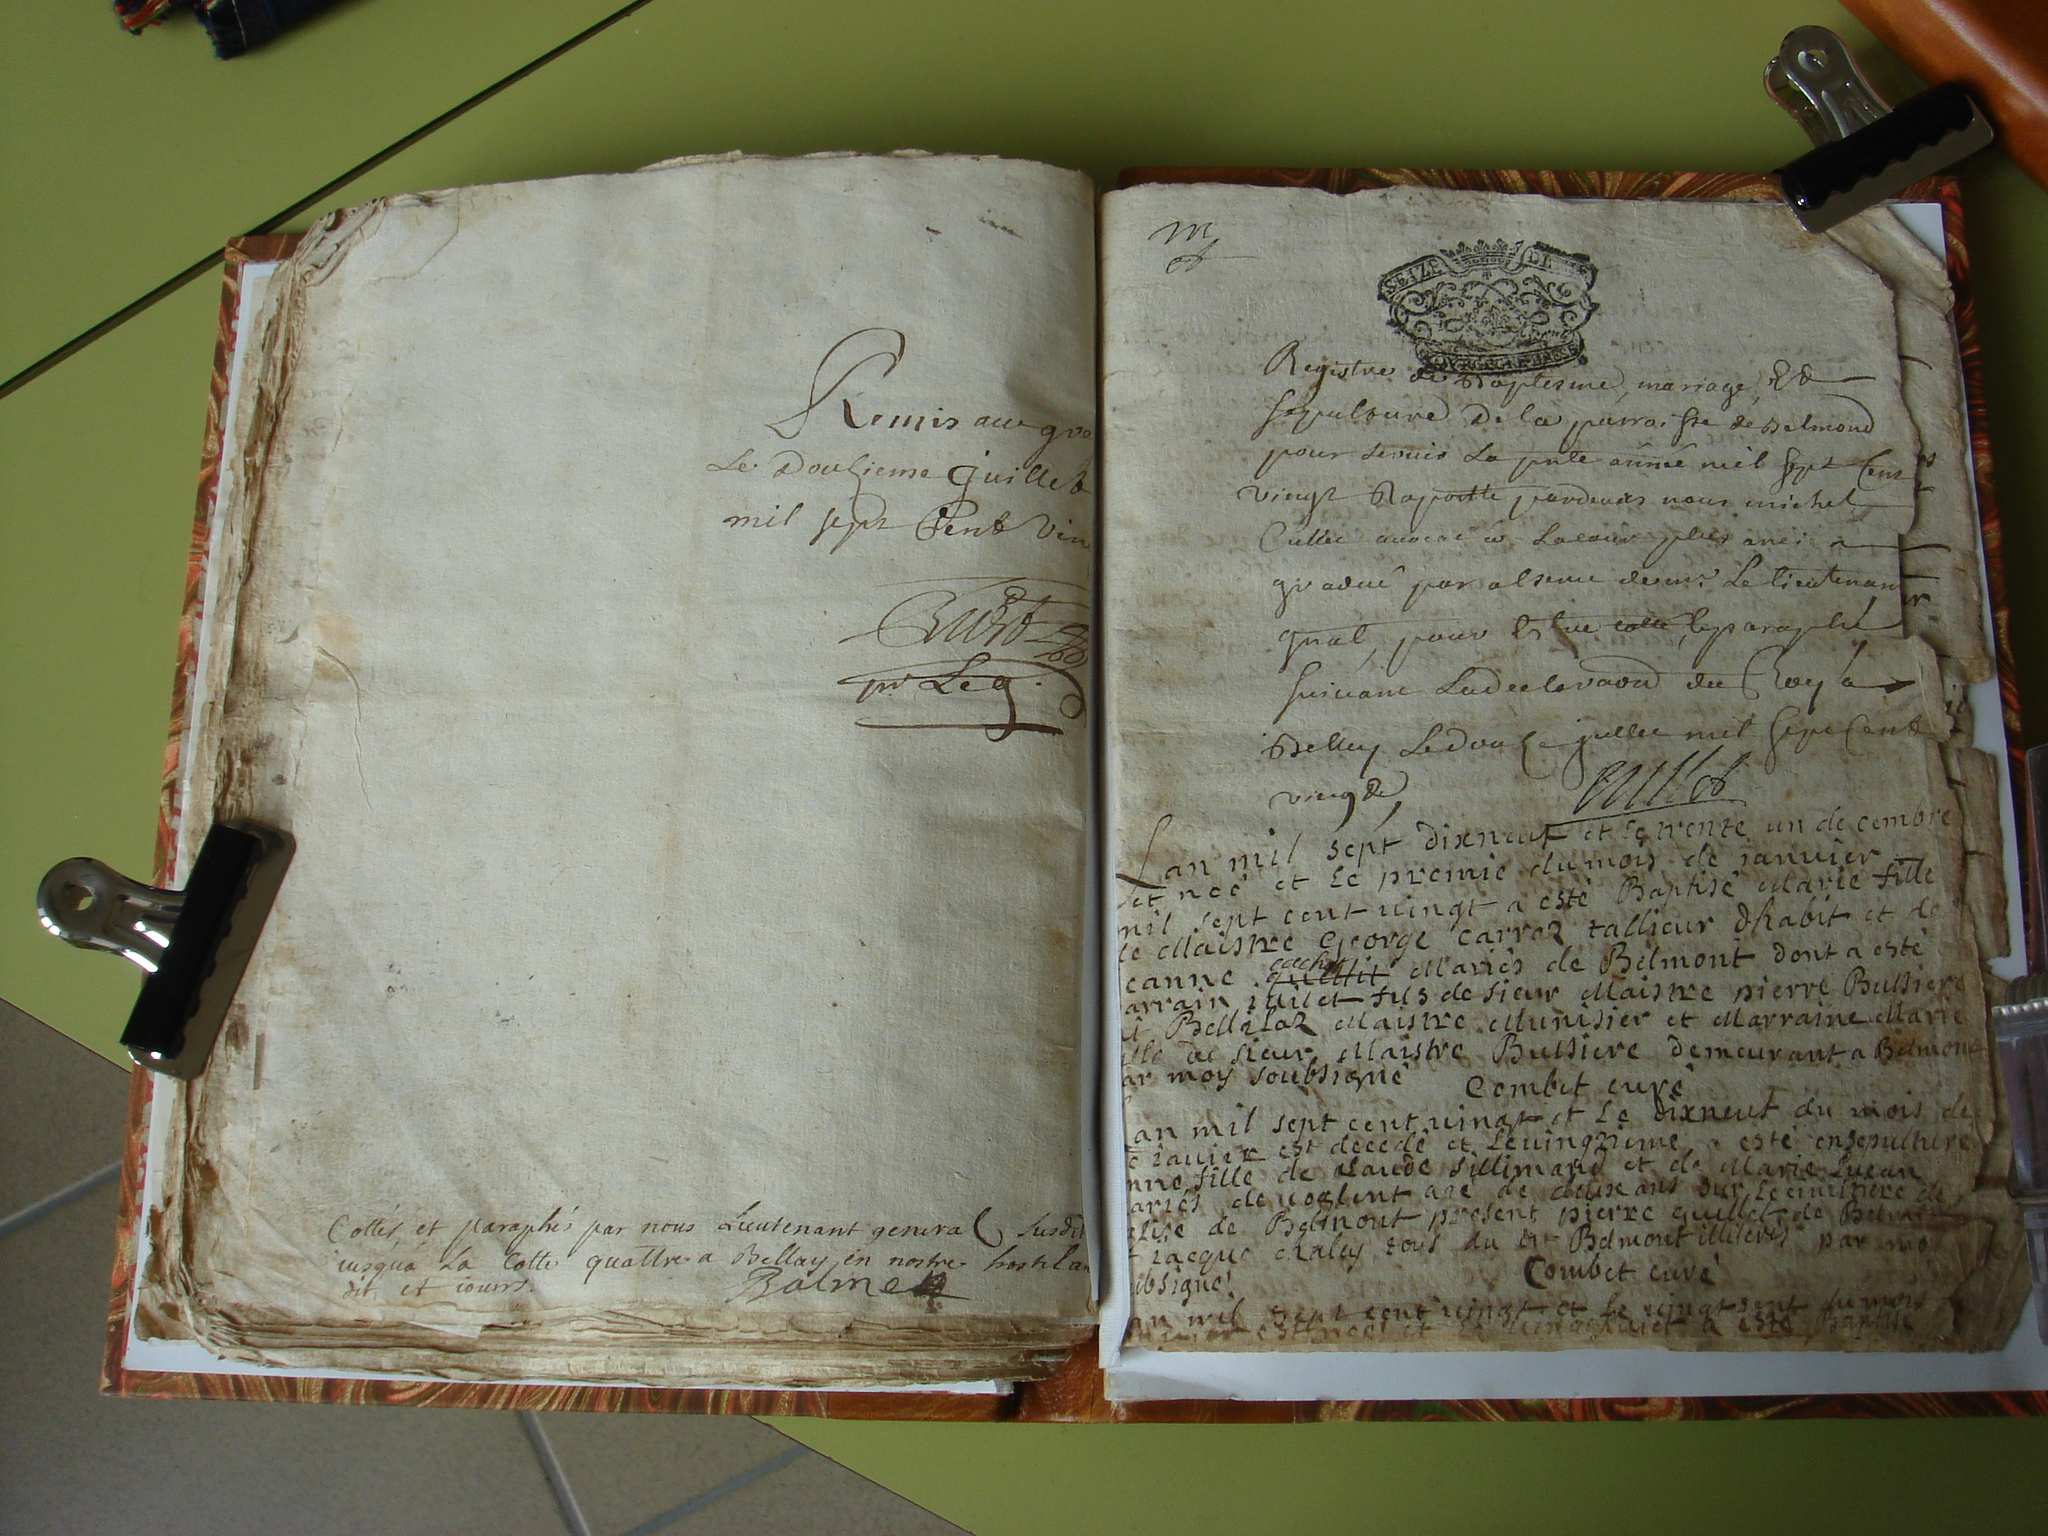 Remis au
Le Douzieme Juillet
mil sept Cent Vin
Cottés, et paraphés par nous Lieutenant general susdit
jusqua La Cotte quattre a Bellay en nostre hostel
dit, et iours.
Balme
SEIZE DE
Registre de Baptesme, mariage, &
sepulture De la parroisse de Belmond
pour servir La pnte année mil sept Cent
vingt Raporté pardevant nous michel
Cullet avocat a La cour plus ancien
gradué par absence de mr Le lieutenant
gnal, pour Estre cotté, & paraphé
suivant La declaraon du Roy a
Belley Le douze juillet mil sept Cent
vingt
Cullet
Lan mil sept dixneuf et le trente un decembre
est neé et le premie du mois de ianvier
mil sept cent vingt a esté Baptisé Marie fille
de Maistre George carrez tallieur dhabit et de
eanne Mariés de Belmont dont a esté
arrain fils de sieur Maistre pierre Bussiere
Maistre Munisier et Marraine Marie
de sieur Maistre Bussiere demeurant a Belmont
ar moy soubsigné Combet curé
an mil sept cent vingt et le dixneuf du mois de
ianvier est decedé et le vingtieme a esté ensepulture
nne fille de claude sillimand et de Marie
ariés de agé de deux ans sur le cimitiere de
lise de Belmont present pierre guillet de Belmont
iacque tous du dit Belmont illiterés par moy
ubsigné Combet curé
an mil sept cent vingt et le vingt sept du mois
a esté Baptisé